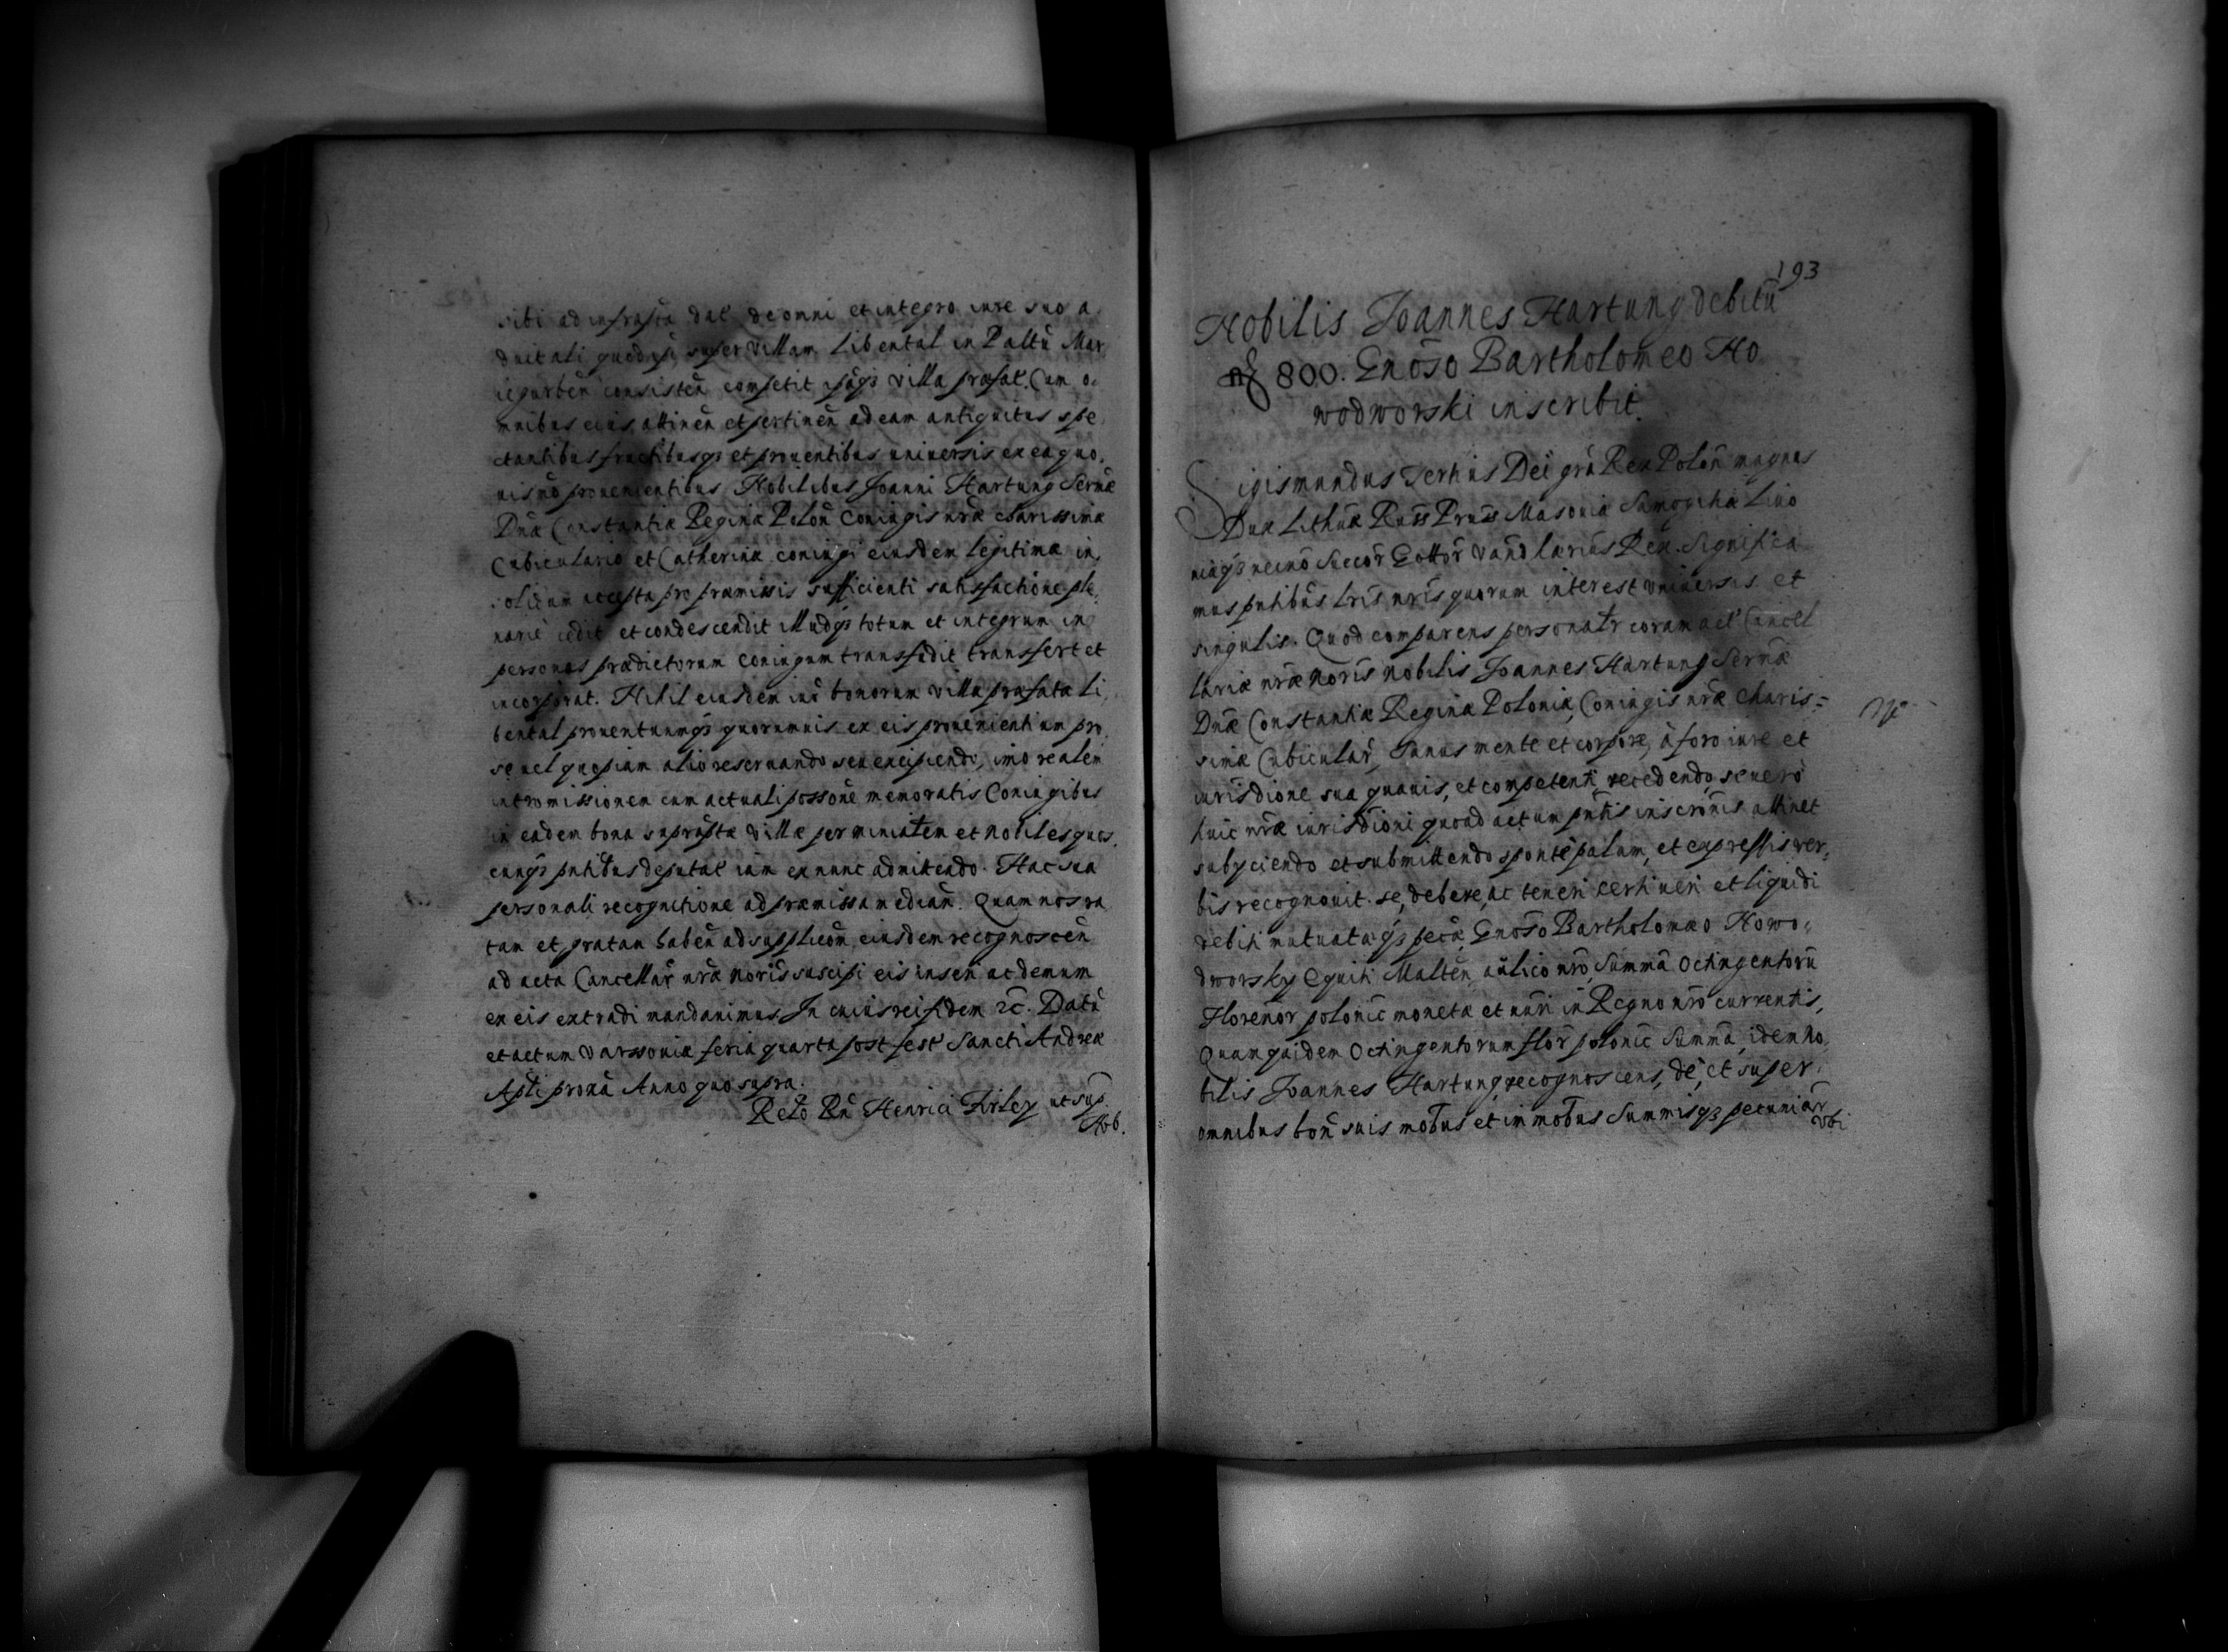 sibi ad infrascta dat de omni et integro iure suo a
duitali quod ipsi super villam Libental in Paltū Mar
iegurbeñ consisteñ competit ipsaqз villa præfat. Cum o.
mnibus eius attineñ et pertineñ ad eam antiquitus spe
ctantibus fructibusqз et prouentibus uniuersis ex ea quo,
uis mō prouenientibus Nobilibus Joanni Hartung Serñæ
Dnæ Constantiæ Reginæ Poloñ Coniugis nræ charissimæ
Cubiculario et Catherinæ coniugi eiusdem legitimæ in
solidum accepta pro præmissis sufficienti satisfactione ple,
narie cedit et condescendit illudqз totum et integrum in
personas prædictorum Coniugum transfudit transfert et
incorporat. Nihil eiusdem iuris bonorum villa præfata Li,
bental prouentuumqз quorumuis ex eis prouenientium pro
se uel quopiam alio reseruando seu excipiendo, imo realem
intromissionem cum actuali possōne memoratis Coniugibus
in eadem bona suprascptæ villæ per ministm et nobiles ques,
cunqз pntibus deputat iam ex nunc admittendo. Hac sua
personali recognitione ad præmissa mediañ. Quam nos ra
tam et gratam habeñ ad supplicōn eiusdem recognosceñ
ad acta Cancellar nræ Noris suscipi eis inseri ac demum
ex eis extradi mandauimus. In cuius rei fidem ꝛc. Datū
et actum Varsouiæ feria quarta post fest Sancti Andreæ
Apli proxā Anno quo supra.
Relō Rñ Henrici Firley ut sup.
Nob.
193
Nobilis Joannes Hartung debitū
800. Gnōso Bartholomeo No
wodworski inscribit.
Sigismundus Tertius Dei grā Rex Poloñ magnus
Dux Lithūæ Russ Pruss Masouiæ Samogitiæ Liuo
niæqз necnō Suecor Gottor Vandlariūs Rex. Significa
mus pntibus lris nris quorum interest vniuersis et
singulis. Quod comparens personalr coram act Cancel
lariæ nræ Noris Nobilis Joannes Hartung Serñæ
Dnæ Constantiæ Reginæ Poloniæ, Coniugis nræ Charis=
simæ Cubicular, Sanus mente et corpore, à foro iure et
iurisdione sua quauis, et competenti recedendo, se uerò
huic nræ iurisdioni quoad actum pntis inscrōnis attinet
subyciendo et submittendo sponte palam, et expressis ver,
bis recognouit. se, debere, ac teneri certi ueri et liquidi
debiti mutuatæqз pecā, Gnōso Bartholomæo Nowo,
dworsky Equiti Malteñ aulico nrō, Summā Octingentorū
Florenor polonic monetæ et nūri in Regno nrō currentis,
Quamquidem Octingentorum flor polonic Summā, idem No,
bilis Joannes Hartung recognoscens, de, et super
omnibus boñ suis mobus et immobus Summisqз pecuniar
vbi